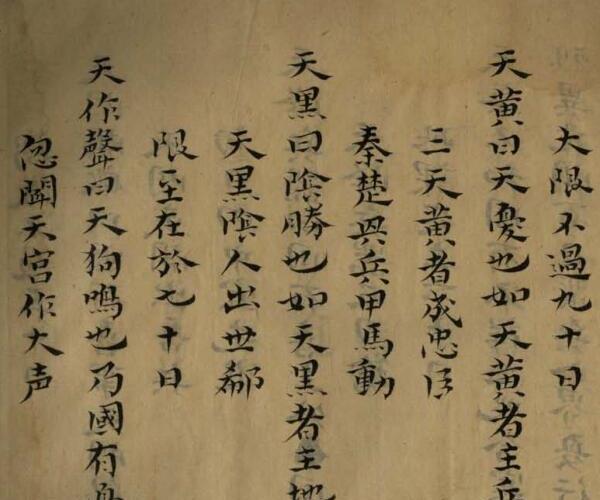 大限不過九十日
天黃曰天憂也如天黃者主兵
三天黃者成忠臣
秦楚興兵甲馬動
天黑曰陰勝也如天黑者主地
天黑陰人出世鄰
限至在於七十日
天作聲曰天狗鳴也乃國有
忽聞天宫作大声